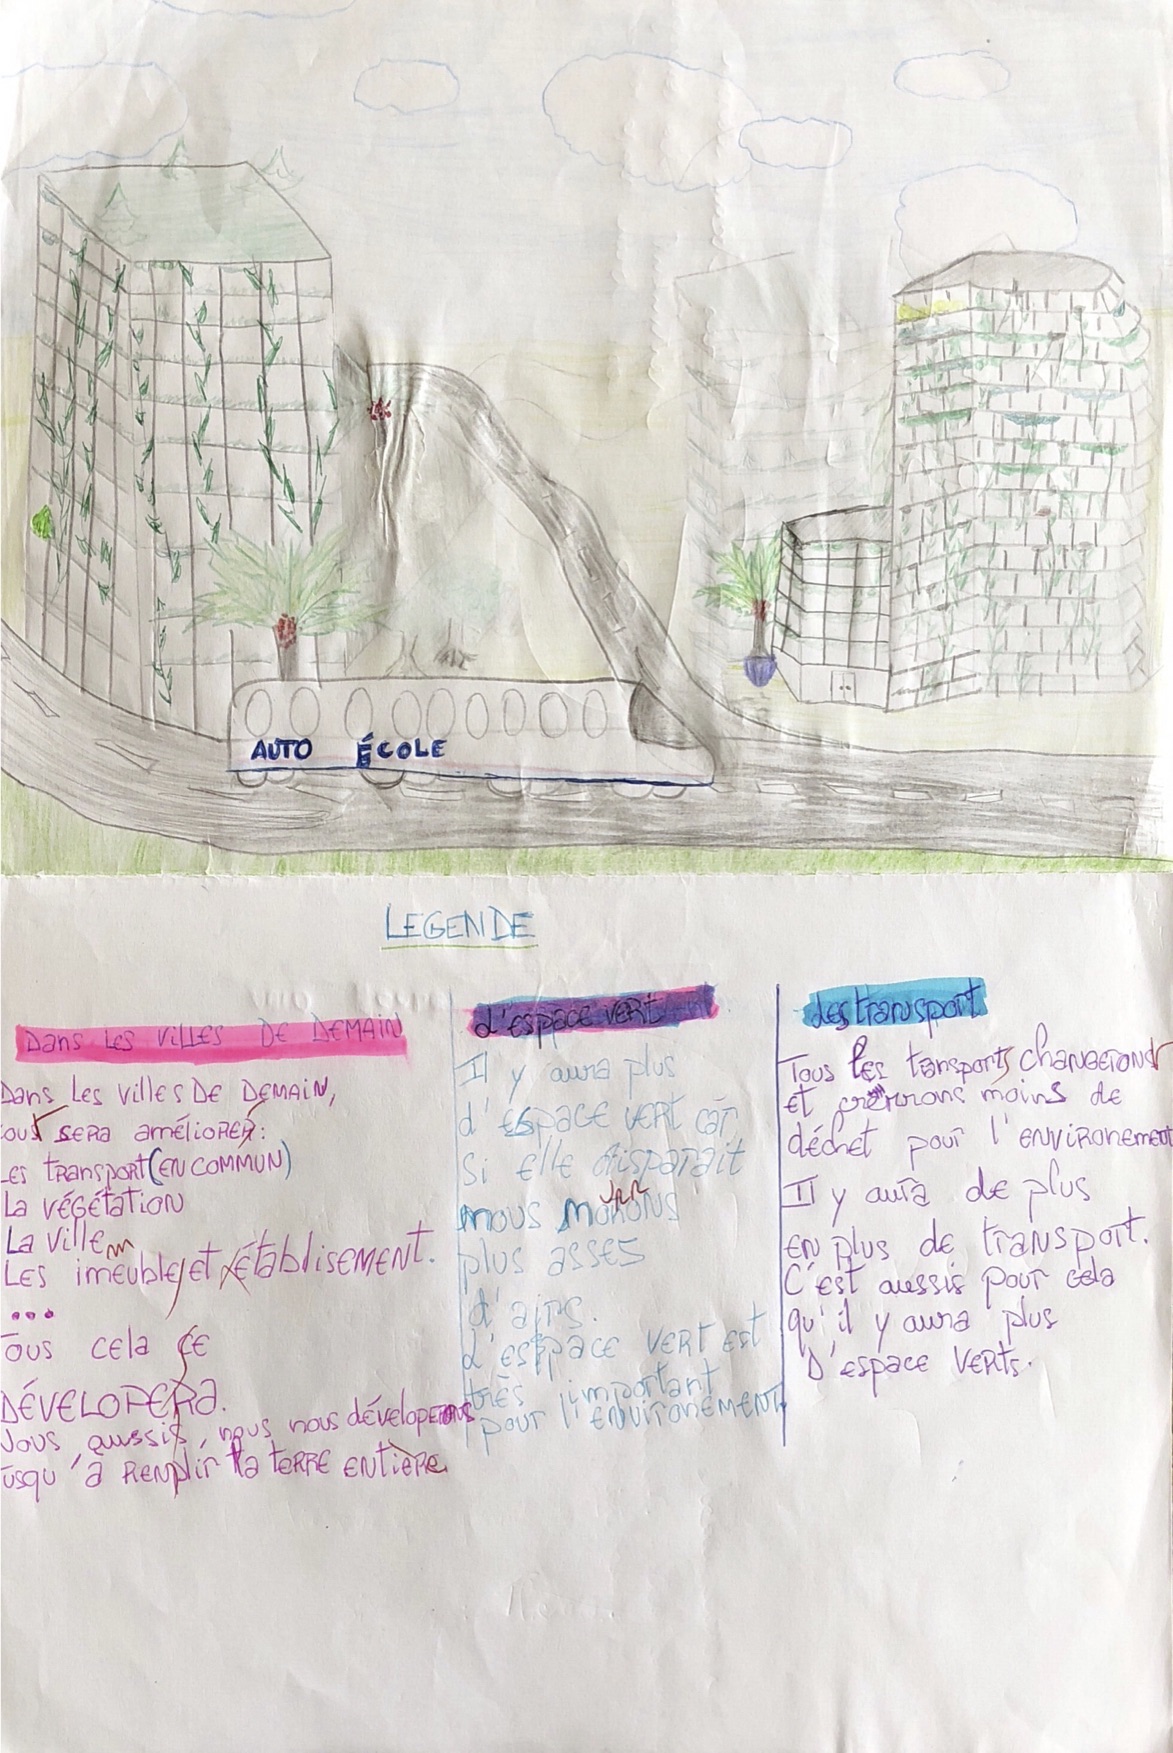 AUTO ÉCOLE
LEGENDE
Dans LES VILLES DE DEMAIN
Dans LES VILLES DE DEMAIN,
out SERA améLIORER:
LES TRANSPORT (EN COMMUN)
La VÉGÉTATION
La VILLE
LES imeuble et établisEMENT.
...
Tous cela ce
DÉVELOPERA.
Nous aussis, nous nous déveloperons
usqu'à REMPLIR la TERRE ENTIÈRE
L'ESPACE VERT
Il y aura plus
d'ESPACE VERT car
Si elle disparait
nous MORONS
plus asses
d'airs.
L'ESPACE VERT EST
très important
pour l'ENVIRONEMENT
des transport
Tous les tansports changerond
et moins de
déchet pour l'ENVIRONEMENT
Il y aura de plus
en plus de transport.
C'est aussis pour cela
qu'il y aura plus
D'ESPACE VERTS.